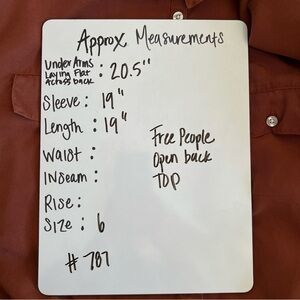 Approx Measurements
Under Arms
Laying Flat : 20.5"
Across back
Sleeve : 19"
Length : 19"
Free People
Waist :
Open back
Inseam :
Top
Rise :
Size : 6
# 787